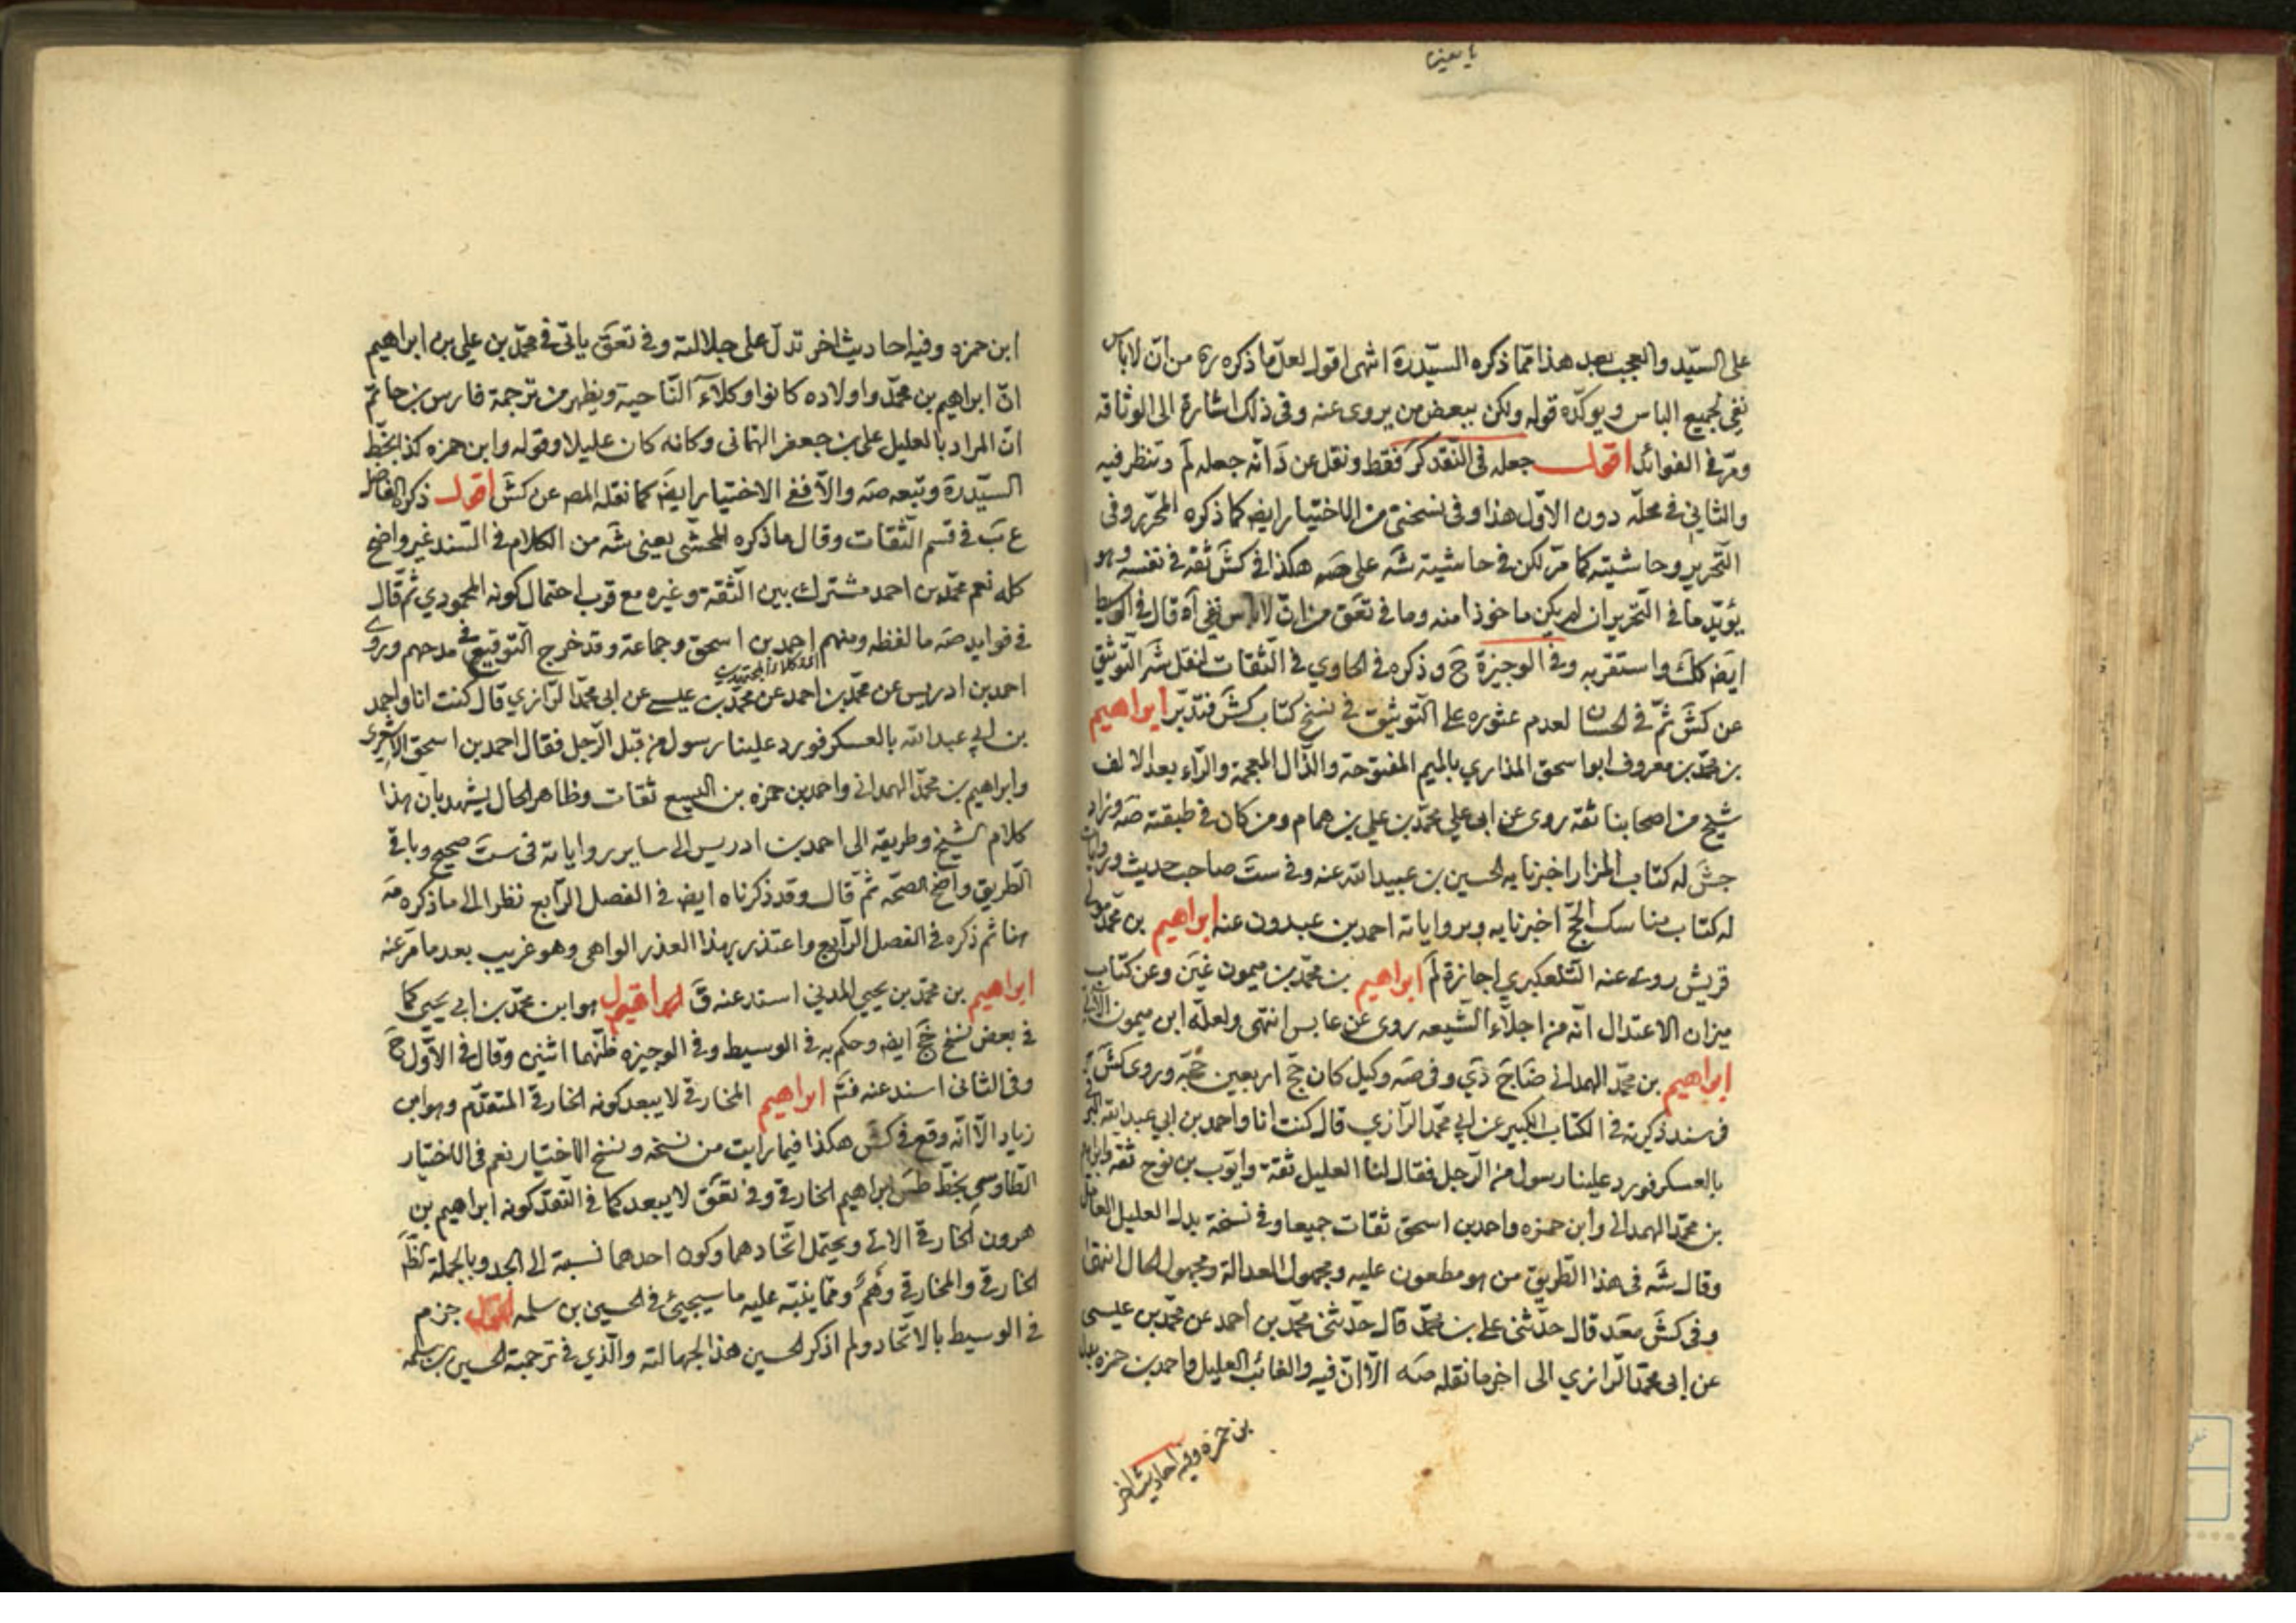 يا معين
على السيّد والعجب بعد هذا ممّا ذكره السيّد رة انتهى اقول لعل ما ذكره ره من ان لا باس
نفى لجميع الباس ويوكّده قوله ولكن ببعض من يروى عنه وفى ذلك اشارة الى الوثاقه
ومرّ فى الفوائد اقول جعله فى النقد كر فقط ونقل عن د انه جعله لم وتنظر فيه
والثاني فى محلّه دون الاوّل هذا وفى نسختى من الاختيار ايض كما ذكره المحرّر وفى
التحرير وحاشيته كما مرّ لكن فى حاشيته شه على صه هكذا فى كش ثقة فى نفسه وهو
يؤيّد ما فى التحرير ان لم يكن ماخوذا منه وما فى تعق من ان لا باس نفى آه قال فى الوسيط
ايض كك واستقربه وفى الوجيزة ح وذكره فى الحاوي فى الثقات لنقل شه التوثيق
عن كش ثمّ فى الحسان لعدم عثوره على التوثيق فى نسخ كتاب كش فتدبّر ابراهيم
بن محمّد بن معروف ابو اسحق المذاري بالميم المفتوحة والذال المعجمة والرّاء بعد الالف
شيخ من اصحابنا ثقة روى عن ابى علي محمّد بن علي بن همام ومن كان فى طبقته صه وزاد
جش له كتاب المزار اخبرنا به الحسين بن عبيد الله عنه وفى ست صاحب حديث وروايات
له كتاب مناسك الحجّ اخبرنا به وبرواياته احمد بن عبدون عنه ابراهيم بن محمّد مولى
قريش روى عنه التلعكبري اجازة لم ابراهيم بن محمّد بن ميمون غين وعن كتاب
ميزان الاعتدال انّه من اجلاّء الشيعه روى عن عابس انتهى ولعلّه ابن ميمون الاتى
ابراهيم بن محمّد الهمدانى ضا ج دي وفى صه وكيل كان حجّ اربعين حجّة وروى كش
فى سند ذكرته فى الكتاب الكبير عن ابي محمّد الرازي قال كنت انا واحمد بن ابي عبد الله البرقى
بالعسكر فورد علينا رسول من الرجل فقال لنا العليل ثقة وايّوب بن نوح ثقة وابراهيم
بن محمّد الهمدانى وابن حمزه واحمد بن اسحق ثقات جميعا وفى نسخة بدل العليل العامل
وقال شه فى هذا الطريق من هو مطعون عليه ومجهول العدالة ومجهول الحال انتهى
وفى كش معد قال حدّثنى على بن محمّد قال حدّثنى محمّد بن احمد عن محمّد بن عيسى
عن ابى محمّد الرازي الى اخر ما نقله صه الاّ انّ فيه والغائب العليل واحمد بن حمزه بدل
بن حمزه وفيه احاديث اخر
ابن حمزه وفيه احاديث اخر تدلّ على جلالته وفى تعق ياتى فى محمّد بن علي بن ابراهيم
انّ ابراهيم بن محمّد واولاده كانوا وكلاء النّاحية ويظهر من ترجمة فارس بن حاتم
انّ المراد بالعليل على بن جعفر اليمانى وكانه كان عليلا وقوله وابن حمزه كذا بخطّ
السيّد رة وتبعه صه والاّ ففى الاختيار ايض كما نقله المص عن كش اقول ذكره الفاضل
ع ب فى قسم الثقات وقال ما ذكره المحشى يعنى شه من الكلام فى السند غير واضح
كله نعم محمّد بن احمد مشترك بين الثقة وغيره مع قرب احتمال كونه المحمودي ثمّ قال
فى فوايد صه ما لفظه ومنهم احمد بن اسحق وجماعة وقد خرج التوقيع فى مدحهم وروى
احمد بن ادريس عن محمّد بن احمد عن محمّد بن عيسى عن ابى محمّد الرازي قال كنت انا واحمد
بن ابي عبد الله بالعسكر فورد علينا رسول من قبل الرّجل فقال احمد بن اسحق الاشعرى
وابراهيم بن محمّد الهمدانى واحمد بن حمزه بن اليسع ثقات وظاهر الحال يشهد بان هذا
كلام الشيخ وطريقه الى احمد بن ادريس الى ساير رواياته فى ست صحيح وباقى
الطريق واضح الصحّه ثمّ قال وقد ذكرناه ايض فى الفصل الرّابع نظرا الى ما ذكره شه
هنا ثم ذكره فى الفصل الرّابع واعتذر بهذا العذر الواهى وهو غريب بعد ما مرّ عنه
ابراهيم بن محمّد بن يحيى المدني اسند عنه ق اقول هو ابن محمّد بن ابى يحيى كما
فى بعض نسخ جخ ايض وحكم به فى الوسيط وفى الوجيزه ظنّهما اثنين وقال فى الاوّل ح
وفى الثانى اسند عنه فتم ابراهيم المخارقى لا يبعد كونه الخارقى المتقدّم وهو ابن
زياد الاّ انّه وقع فى كش هكذا فيما رايت من نسخه ونسخ الاختيار نعم فى الاختيار
الطاوسي بخطّ طس ابراهيم الخارقى وفى تعق لا يبعد كما فى النقد كونه ابراهيم بن
هرون الخارقى الاتى ويحتمل اتّحادهما وكون احدهما نسبة الى الجد وبالجملة
الخارقى والمخارقى وهم وممّا ينبّه عليه ما سيجيئ فى الحسين بن سلمه اقول جزم
فى الوسيط بالاتّحاد ولم اذكر الحسين هذا لجهالته والّذي فى ترجمة الحسين بن سلمه